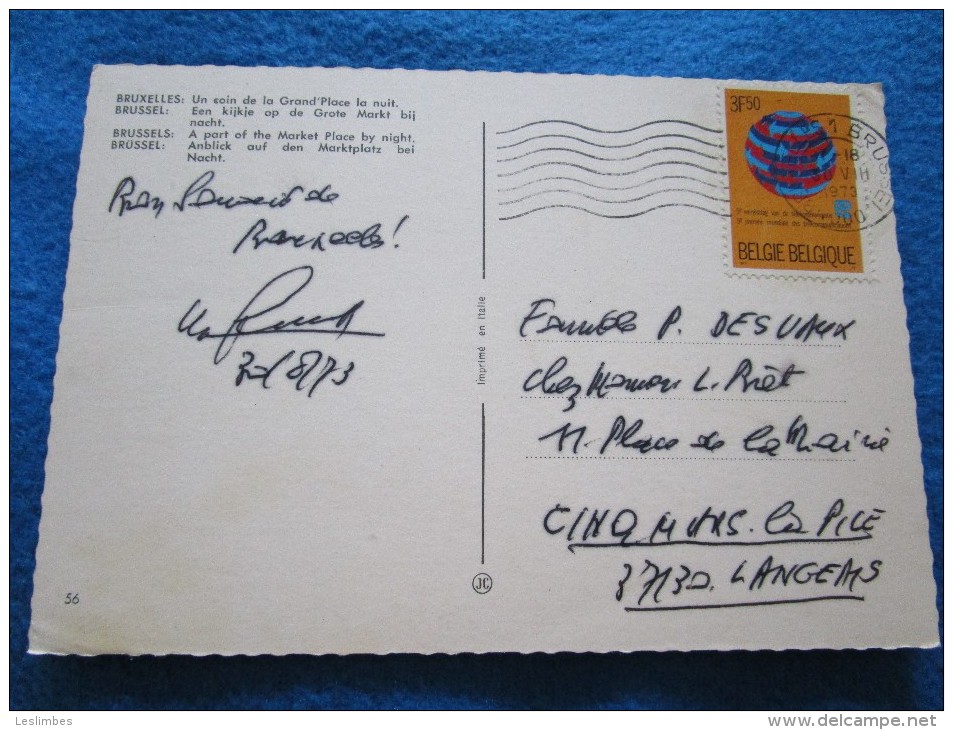 BRUXELLES: Un coin de la Grand'Place la nuit.
BRUSSEL: Een kijkje op de Grote Markt bij
nacht.
BRUSSELS: A part of the Market Place by night.
BRÜSSEL: Anblick auf den Marktplatz bei
Nacht.
de
Bruxelles!
30/8/73
56
imprimé en Italie
JC
3F50
BELGIE BELGIQUE
1 BRUSSEL
18
VIII
1973
Famille P. DESVAUX
chez L.
11. Place de la Mairie
CINQ MARS. La PILE
37130. LANGEAIS
Leslimbes
www.delcampe.net